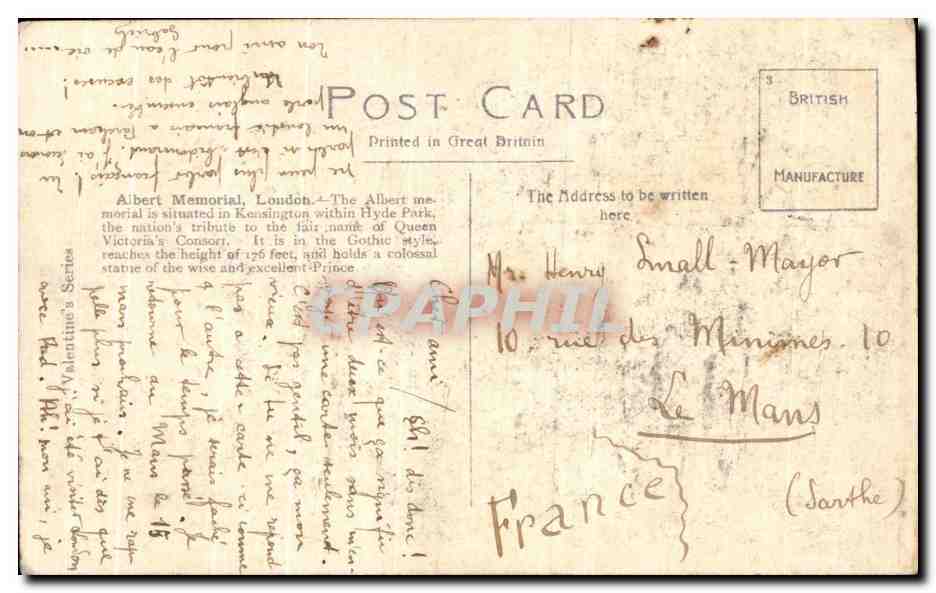 POST CARD
Printed in Great Britain
BRITISH
MANUFACTURE
3
The Address to be written
here
Albert Memorial, London.—The Albert me-
morial is situated in Kensington within Hyde Park,
the nation's tribute to the fair name of Queen
Victoria's Consort. It is in the Gothic style,
reaches the height of 176 feet, and holds a colossal
statue of the wise and excellent Prince
Valentine's Series
Mr. Henry Small-Mayor
10 rue des Minimes. 10
Le Mans
(Sarthe)
France
Cher ami / Eh! dis donc!
Qu'est-ce que ça signifie
d'être deux mois sans m'en-
voyer une carte seulement.
C'est pas gentil, ça mon
vieux. Si tu ne me répond
pas à cette carte ci comme
à l'autre, je serais faché
pour le temps passé. Je
retourne au Mans le 15
mars prochain. Je ne me rap
pelle plus si je t'ai dès que
j'ai été visiter London
avec Fred. Ah! mon ami, je
ne peux plus parler français! Tu
parles si c'est
un français à j'ai
parlé anglais ensemble.
des excuses!
Ton ami pour l'eau de vie....
Gabriel
CPAPHIL